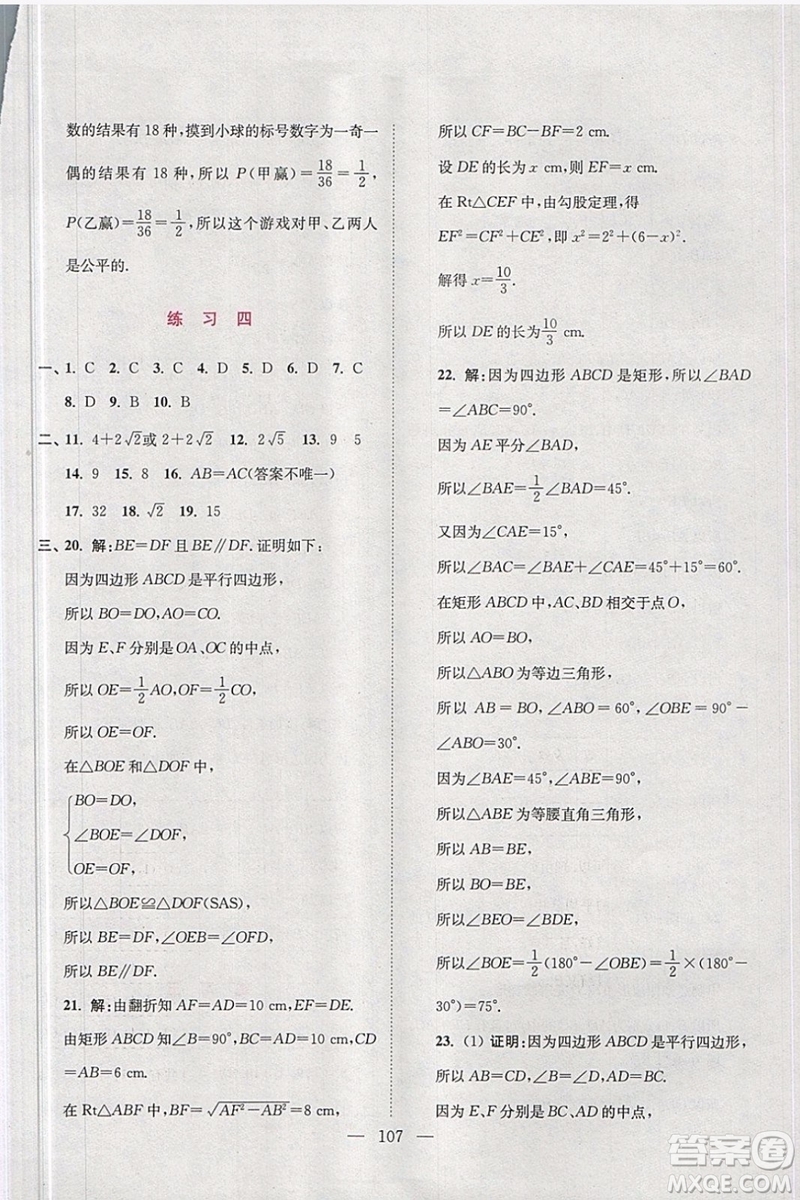 数的结果有 18 种，摸到小球的标号数字为一奇一
偶的结果有 18 种，所以 P(甲赢)=18/36=1/2，
P(乙赢)=18/36=1/2，所以这个游戏对甲、乙两人
是公平的.
练 习 四
一、1. C  2. C  3. C  4. D  5. D  6. D  7. C
8. D  9. B  10. B
二、11. 4+2√2或 2+2√2  12. 2√5  13. 9  5
14. 9  15. 8  16. AB=AC(答案不唯一)
17. 32  18. √2  19. 15
三、20. 解:BE=DF 且 BE∥DF.证明如下:
因为四边形 ABCD 是平行四边形，
所以 BO=DO，AO=CO.
因为 E、F 分别是 OA、OC 的中点，
所以 OE=1/2AO，OF=1/2CO，
所以 OE=OF.
在△BOE 和△DOF 中，
BO=DO，
∠BOE=∠DOF，
OE=OF，
所以△BOE≌△DOF(SAS)，
所以 BE=DF，∠OEB=∠OFD，
所以 BE∥DF.
21. 解:由翻折知 AF=AD=10 cm，EF=DE.
由矩形 ABCD 知∠B=90°，BC=AD=10 cm，CD
=AB=6 cm.
在 Rt△ABF 中，BF=√(AF²-AB²)=8 cm，
所以 CF=BC-BF=2 cm.
设 DE 的长为 x cm，则 EF=x cm.
在 Rt△CEF 中，由勾股定理，得
EF²=CF²+CE²，即 x²=2²+(6-x)².
解得 x=10/3.
所以 DE 的长为10/3 cm.
22. 解:因为四边形 ABCD 是矩形，所以∠BAD
=∠ABC=90°.
因为 AE 平分∠BAD，
所以∠BAE=1/2∠BAD=45°.
又因为∠CAE=15°，
所以∠BAC=∠BAE+∠CAE=45°+15°=60°.
在矩形 ABCD 中，AC、BD 相交于点 O，
所以 AO=BO，
所以△ABO 为等边三角形，
所以 AB=BO，∠ABO=60°，∠OBE=90°-
∠ABO=30°.
因为∠BAE=45°，∠ABE=90°，
所以△ABE 为等腰直角三角形，
所以 AB=BE，
所以 BO=BE，
所以∠BEO=∠BOE，
所以∠BOE=1/2(180°-∠OBE)=1/2×(180°-
30°)=75°.
23. (1) 证明:因为四边形 ABCD 是平行四边形，
所以 AD∥BC，AD=BC.
因为 E、F 分别是 BC、AD 的中点，
107
答案圈
MXQE.COM